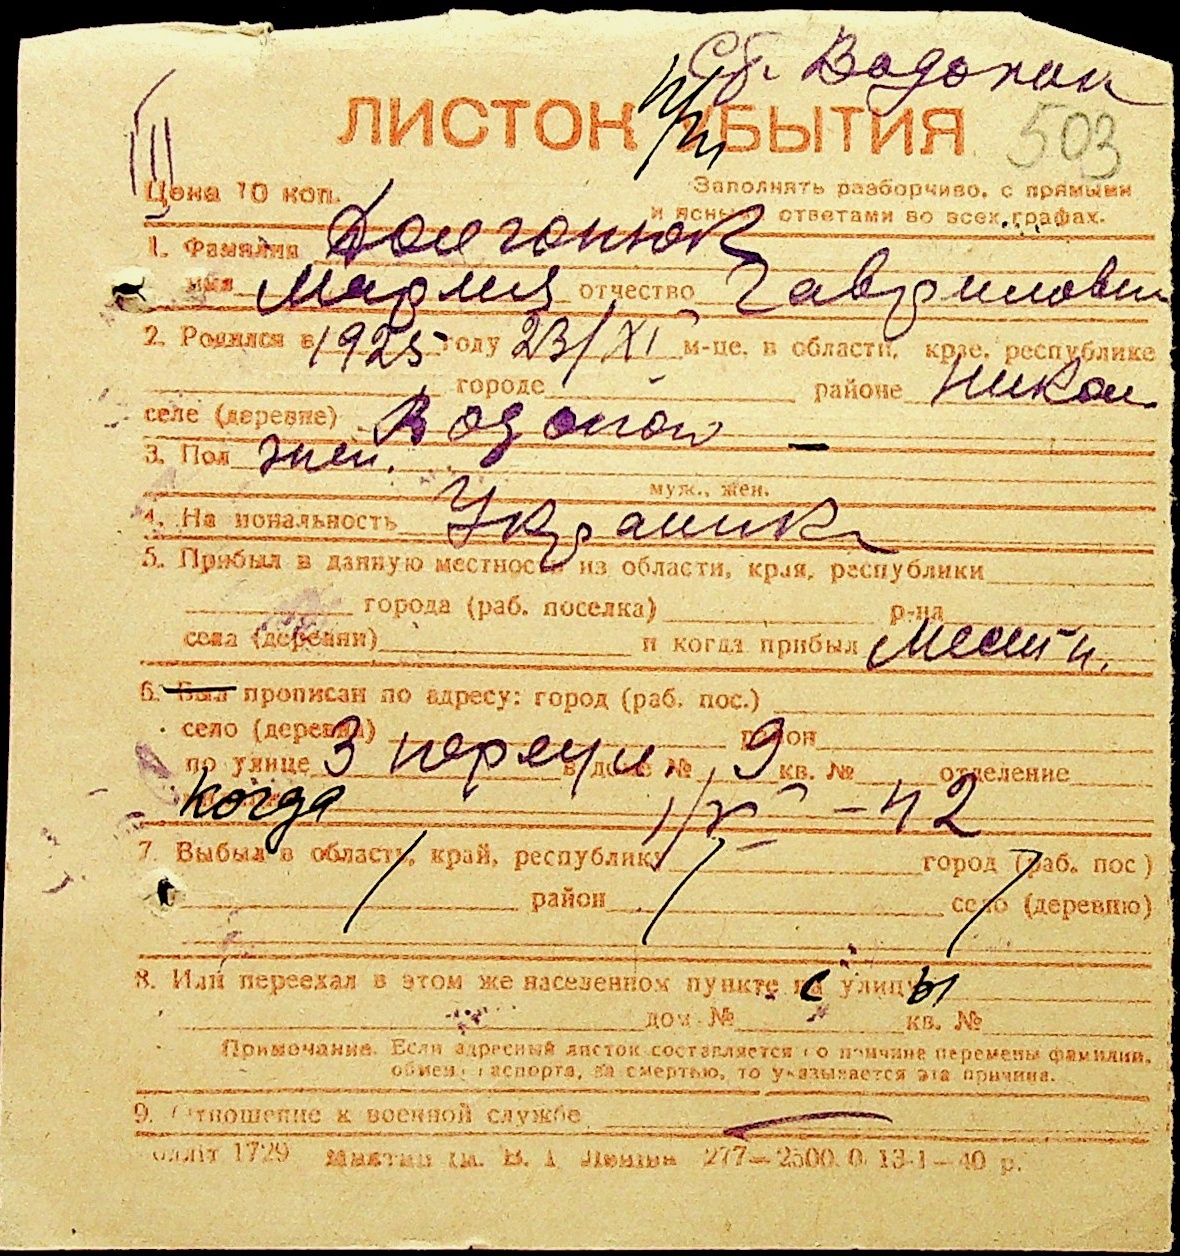 Сб. Водопои
ЛИСТОК УБЫТИЯ
503
Цена 10 коп.
Заполнять разборчиво, с прямыми
и ясными ответами во всех графах.
1. Фамилия Долгонюк
имя Мария отчество Гавриловн
2. Родился в 1925 году 23/XI м-це, в области, крае, республике
городе районе Никол
селе (деревне) Водопой
3. Пол жен.
муж., жен.
4. Национальность Украинк
5. Прибыл в данную местность из области, края, республики
города (раб. поселка) р-на
села (деревни) и когда прибыл Местн.
6. Был прописан по адресу: город (раб. пос.)
село (деревня) район
по улице 3 переул. в доме № 9 кв. № отделение
когда -42
7. Выбыл в область, край, республику город (раб. пос)
район село (деревню)
8. Или переехал в этом же населенном пункте с улицы
дом № кв. №
Примечание. Если адресный листок составляется по причине перемены фамилии,
обмен паспорта, за смертью, то указывается эта причина.
9. Отношение к военной службе
1729 277—2500. 0 13-1—40 р.